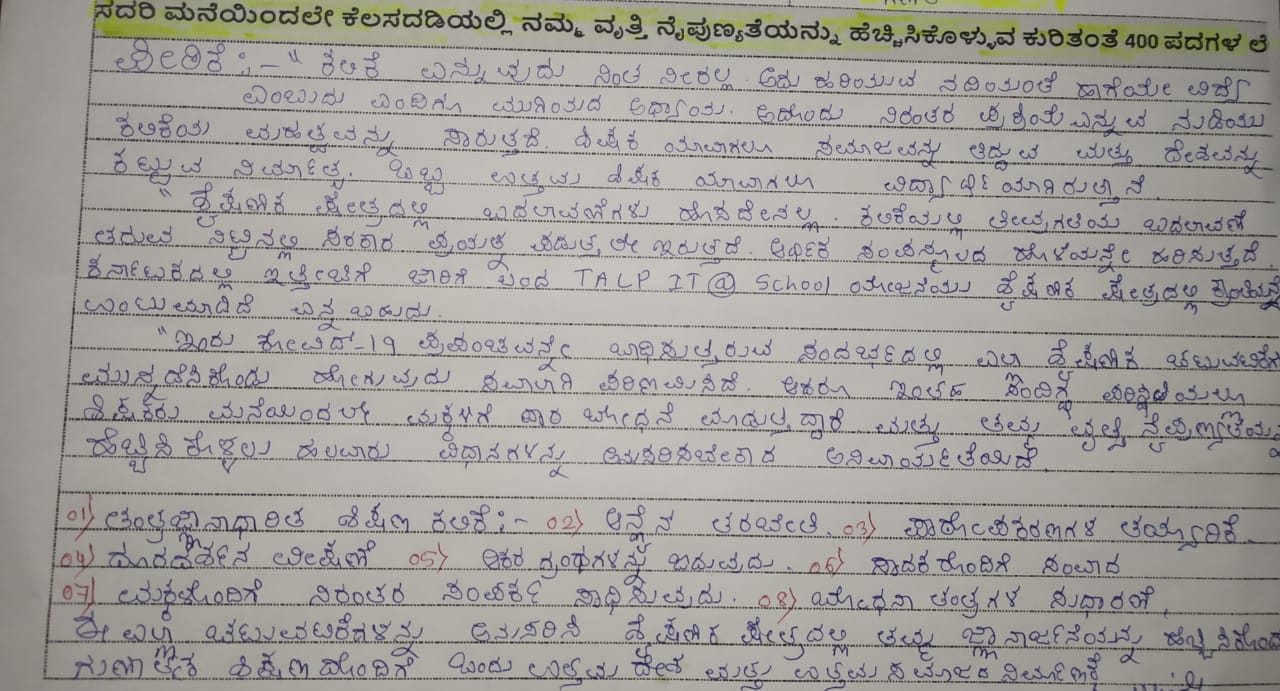 ಸದರಿ ಮನೆಯಿಂದಲೇ ಕೆಲಸದಡಿಯಲ್ಲಿ ನಮ್ಮ ವೃತ್ತಿ ನೈಪುಣ್ಯತೆಯನ್ನು ಹೆಚ್ಚಿಸಿಕೊಳ್ಳುವ ಕುರಿತಂತೆ 400 ಪದಗಳ ಲೆ
ಪೀಠಿಕೆ :- " ಕಲಿಕೆ ಎನ್ನುವುದು ನಿಂತ ನೀರಲ್ಲ ಅದು ಹರಿಯುವ ನದಿಯಂತೆ ಹಾಗೆಯೇ ವಿದ್ಯೆ
ಎಂಬುದು ಎಂದಿಗೂ ಮುಗಿಯದ ಅಧ್ಯಾಯ. ಅದೊಂದು ನಿರಂತರ ಪ್ರಕ್ರಿಯೆ ಎನ್ನುವ ನುಡಿಯು
ಕಲಿಕೆಯ ಮಹತ್ವವನ್ನು ಸಾರುತ್ತದೆ. ಶಿಕ್ಷಕ ಯಾವಾಗಲೂ ಸಮಾಜವನ್ನು ತಿದ್ದುವ ಮತ್ತು ದೇಶವನ್ನು
ಕಟ್ಟುವ ನಿರ್ಮಾತೃ. ಒಬ್ಬ ಉತ್ತಮ ಶಿಕ್ಷಕ ಯಾವಾಗಲು ವಿದ್ಯಾರ್ಥಿಯಾಗಿರುತ್ತಾನೆ
" ಶೈಕ್ಷಣಿಕ ಕ್ಷೇತ್ರದಲ್ಲಿ ಬದಲಾವಣೆಗಳು ಹೊಸದೇನಲ್ಲ. ಕಲಿಕೆಯಲ್ಲಿ ತೀವ್ರಗತಿಯ ಬದಲಾವಣೆ
ತರುವ ನಿಟ್ಟಿನಲ್ಲಿ ಸರಕಾರ ಪ್ರಯತ್ನ ಪಡುತ್ತಲೇ ಇರುತ್ತದೆ. ಆರ್ಥಿಕ ಸಂಪನ್ಮೂಲದ ಹೊಳೆಯನ್ನೇ ಹರಿಸುತ್ತದೆ.
ಕರ್ನಾಟಕದಲ್ಲಿ ಇತ್ತೀಚಿಗೆ ಜಾರಿಗೆ ಬಂದ TALP IT@ School ಯೋಜನೆಯು ಶೈಕ್ಷಣಿಕ ಕ್ಷೇತ್ರದಲ್ಲಿ ಕ್ರಾಂತಿಯನ್ನ
ಉಂಟುಮಾಡಿದೆ ಎನ್ನಬಹುದು.
"ಇಂದು ಕೋವಿಡ್-19 ಪ್ರಪಂಚವನ್ನೇ ಬಾಧಿಸುತ್ತಿರುವ ಸಂದರ್ಭದಲ್ಲಿ ಎಲ್ಲಾ ಶೈಕ್ಷಣಿಕ ಚಟುವಟಿಕೆಗಳ
ಮುನ್ನಡೆಸಿಕೊಂಡು ಹೋಗುವುದು ಸವಾಲಾಗಿ ಪರಿಣಮಿಸಿದೆ. ಆದರೂ ಇಂತಹ ಸಂದಿಗ್ಧ ಪರಿಸ್ಥಿತಿಯಲೂ
ಶಿಕ್ಷಕರು ಮನೆಯಿಂದಲೇ ಮಕ್ಕಳಿಗೆ ಪಾಠ ಬೋಧನೆ ಮಾಡುತ್ತಿದ್ದಾರೆ ಮತ್ತು ತಮ್ಮ ವೃತ್ತಿ ನೈಪುಣ್ಯತೆಯನ್ನ
ಹೆಚ್ಚಿಸಿಕೊಳ್ಳಲು ಹಲವಾರು ವಿಧಾನಗಳನ್ನು ಅನುಸರಿಸಬೇಕಾದ ಅನಿವಾರ್ಯತೆಯಿದೆ.
01) ತಂತ್ರಜ್ಞಾನಾಧಾರಿತ ಶಿಕ್ಷಣ ಕಲಿಕೆ :- 02) ಆನ್ಲೈನ ತರಬೇತಿ. 03) ಪಾಠೋಪಕರಣಗಳ ತಯ್ಯಾರಿಕೆ.
04) ದೂರದರ್ಶನ ವೀಕ್ಷಣೆ 05) ಆಕರ ಗ್ರಂಥಗಳನ್ನು ಓದುವುದು. 06) ಸಾಧಕರೊಂದಿಗೆ ಸಂವಾದ
07) ಮಕ್ಕಳೊಂದಿಗೆ ನಿರಂತರ ಸಂಪರ್ಕ ಸಾಧಿಸುವುದು. 08) ಬೋಧನಾ ತಂತ್ರಗಳ ಸುಧಾರಣೆ,
ಈ ಎಲ್ಲಾ ಚಟುವಟಿಕೆಗಳನ್ನು ಅನುಸರಿಸಿ ಶೈಕ್ಷಣಿಕ ಕ್ಷೇತ್ರದಲ್ಲಿ ತಮ್ಮ ಜ್ಞಾನಾರ್ಜನೆಯನ್ನು ಹೆಚ್ಚಿಸಿಕೊಂಡು
ಗುಣಾತ್ಮಕ ಶಿಕ್ಷಣದೊಂದಿಗೆ ಒಂದು ಉತ್ತಮ ದೇಶ ಮತ್ತು ಉತ್ತಮ ಸಮಾಜದ ನಿರ್ಮಾಣಕ್ಕೆ